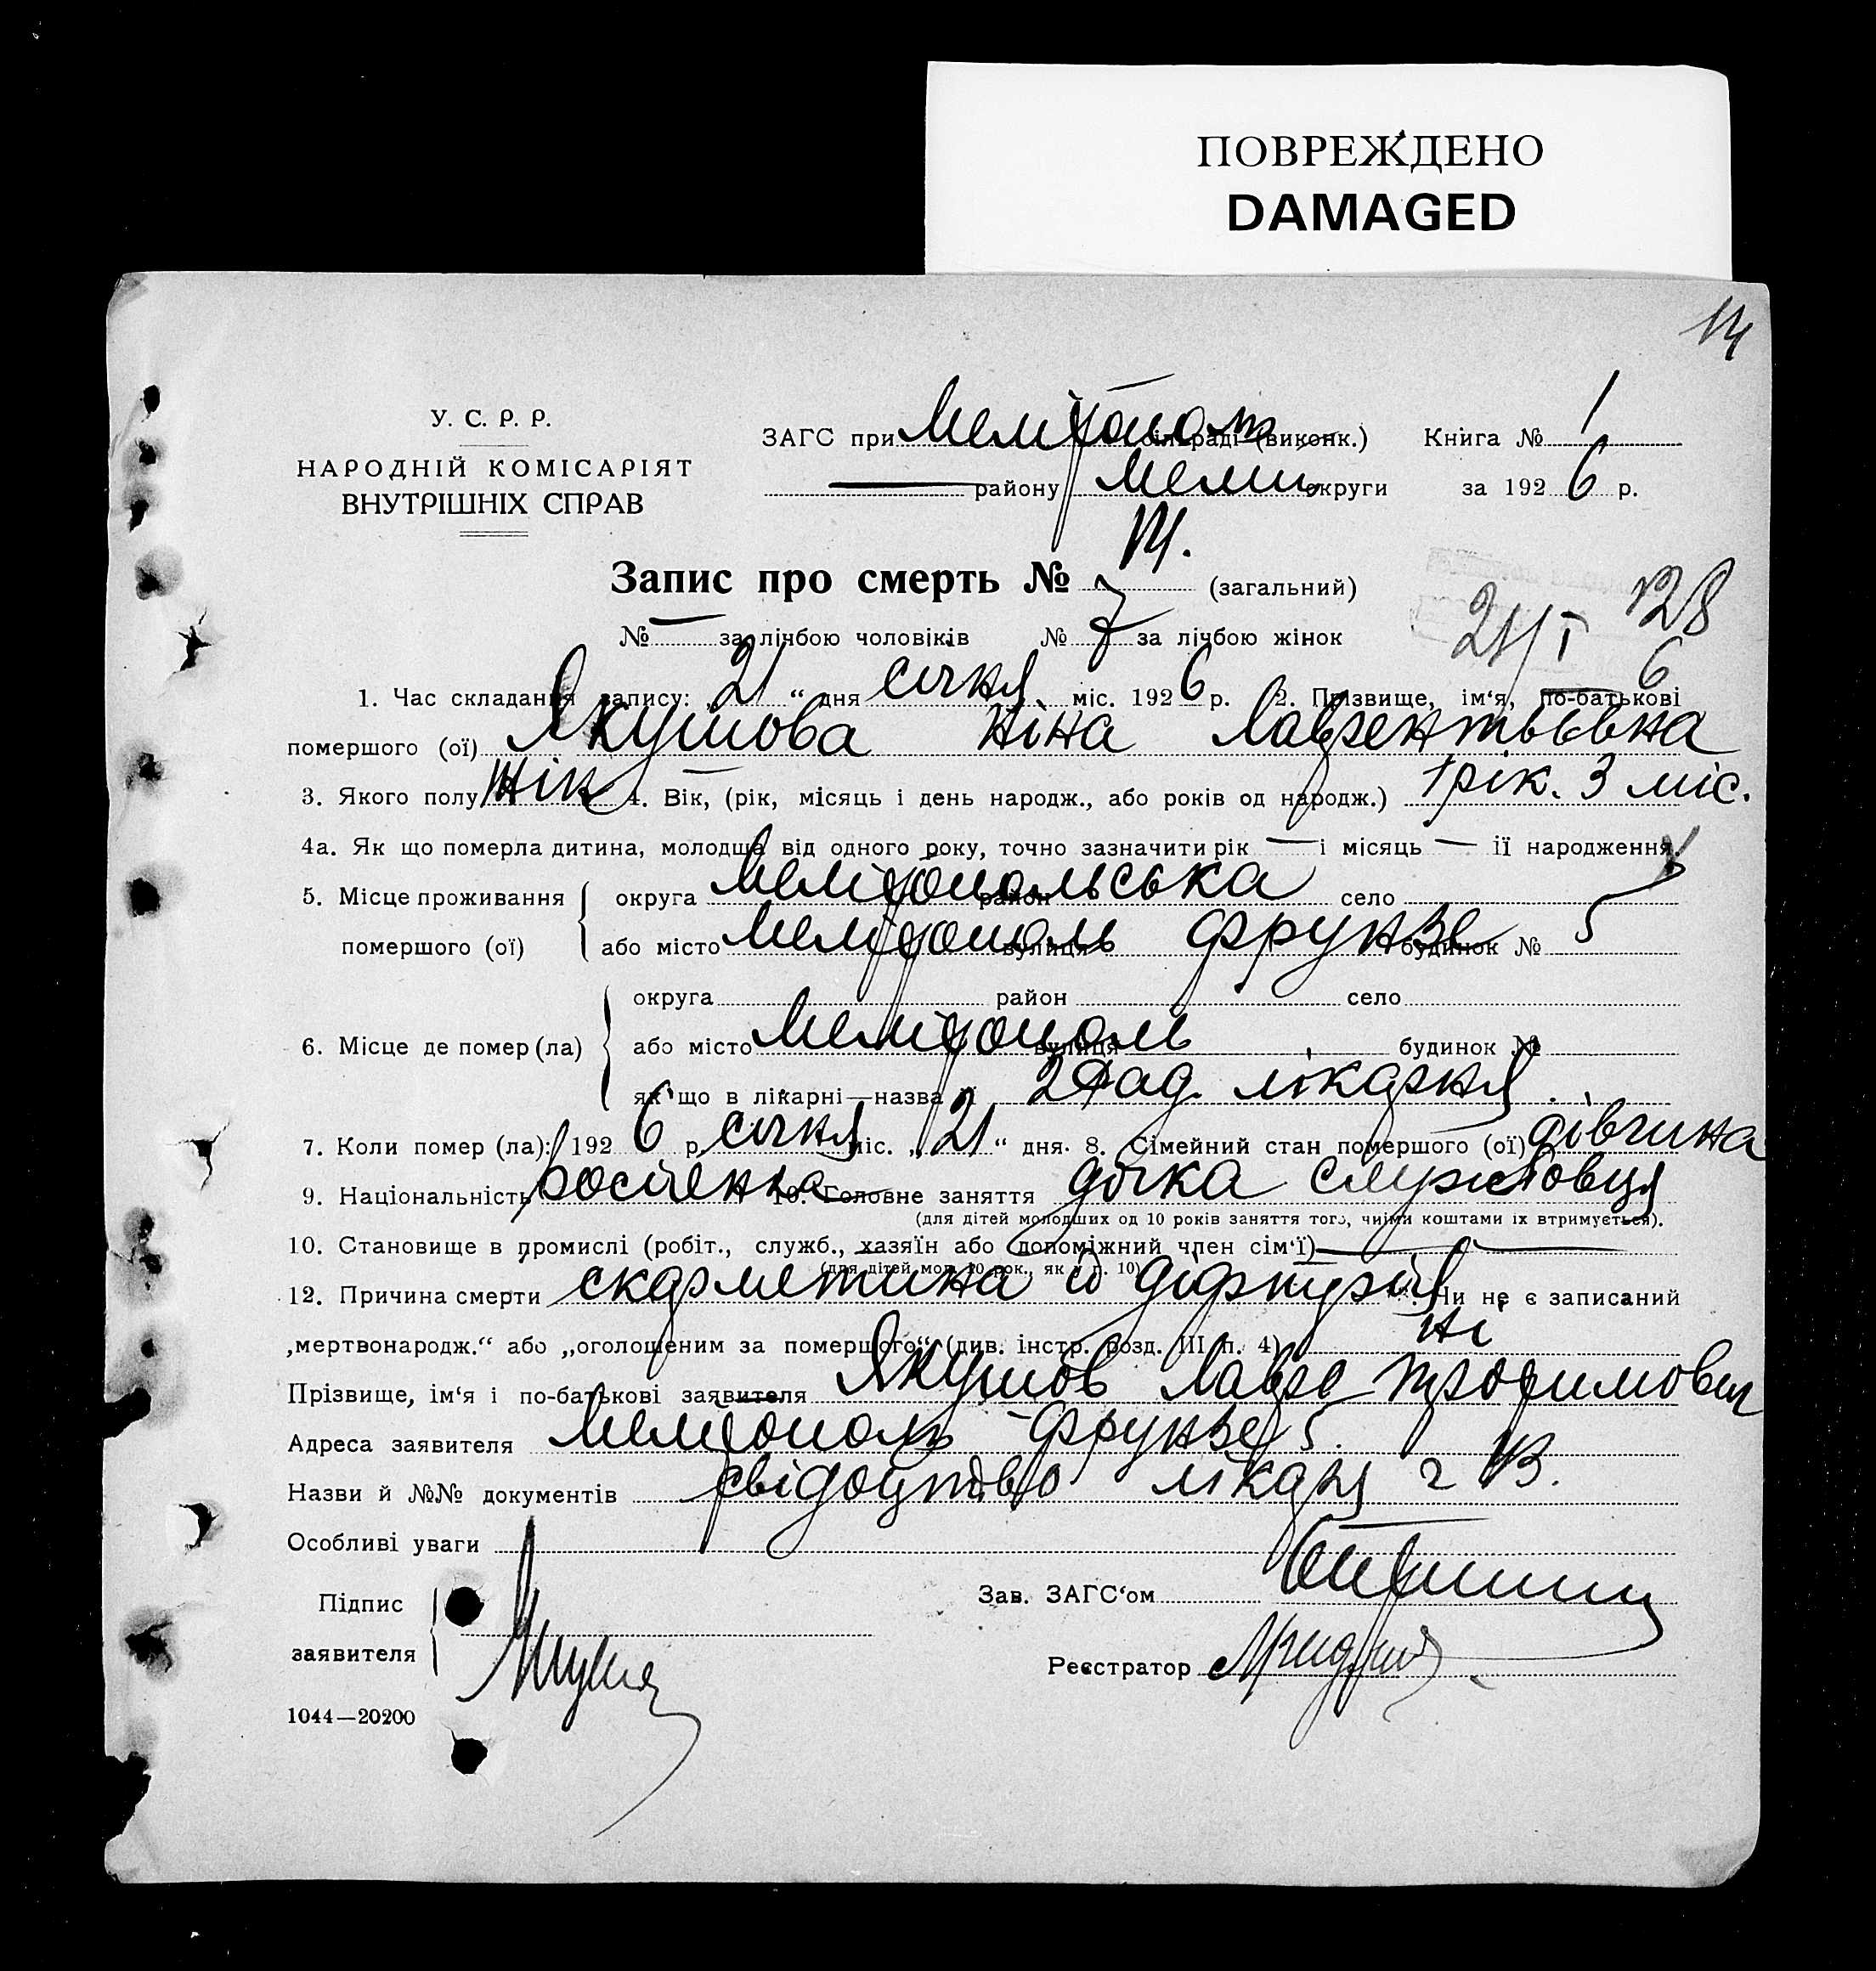 ПОВРЕЖДЕНО
DAMAGED
14
У. С. Р. Р.
НАРОДНІЙ КОМІСАРІЯТ
ВНУТРІШНІХ СПРАВ
ЗАГС при Меліτопол сільраді (виконк.) Книга № 1
— району Мелит. округи за 1926 р.
14.
Запис про смерть № (загальний)
№ — за лічбою чоловіків № 7 за лічбою жінок
21/I 6
128
1. Час складання запису: „21“ дня січня міс. 1926 р. 2. Прізвище, ім‘я, по-батькові
помершого (ої) Якушова Ніна Лаврентьевна
3. Якого полу жін 4. Вік, (рік, місяць і день народж., або років од народж.) 1 рік. 3 міс.
4а. Як що померла дитина, молодша від одного року, точно зазначити рік — і місяць — ії народження
5. Місце проживання округа Мелітопольська район село
помершого (ої) або місто Мелітополь вулиця Фрунзе будинок № 5
округа район село
6. Місце де помер (ла) або місто Мелітополь вулиця будинок №
як що в лікарні—назва її 2 Рад. лікарня
7. Коли помер (ла): 1926 р. січня міс. „21“ дня. 8. Сімейний стан помершого (ої) дівчина
9. Національність росіенка 10. Головне заняття дочка службовця
(для дітей молодших од 10 років заняття того, чиїми коштами їх втримується).
10. Становище в промислі (робіт., служб., хазяїн або допоміжний член сім‘ї) —
(для дітей мол. 10 рок., як у п. 10)
12. Причина смерти скарлетина й діфтерія Чи не є записаний
„мертвонародж.“ або „оголошеним за помершого“ (див. інстр. розд. III п. 4) Ні
Прізвище, ім‘я і по-батькові заявителя Якушов Лавро Трофимович
Адреса заявителя Мелітополь Фрунзе 5.
Назви й №№ документів свідоцтво лікаря
Особливі уваги
Підпис
заявителя
Зав. ЗАГС‘ом
Реєстратор
1044—20200